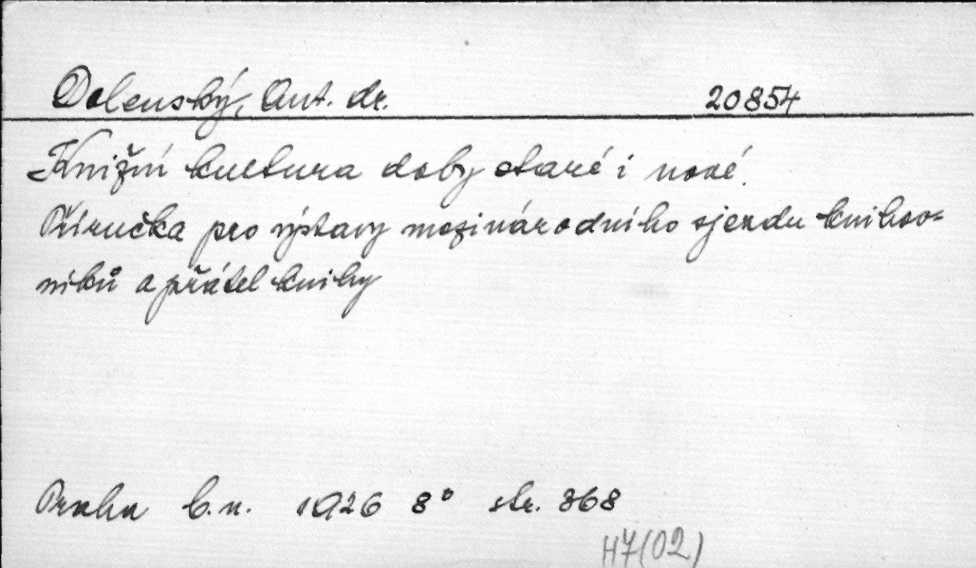 Dolenský, Ant. dr. 20854
Knižní kultura doby staré i nové.
Příručka pro výstavy mezinárodního sjezdu knihov-
níků a přátel knihy
Praha b.n. 1926 8° str. 368
H7(02)